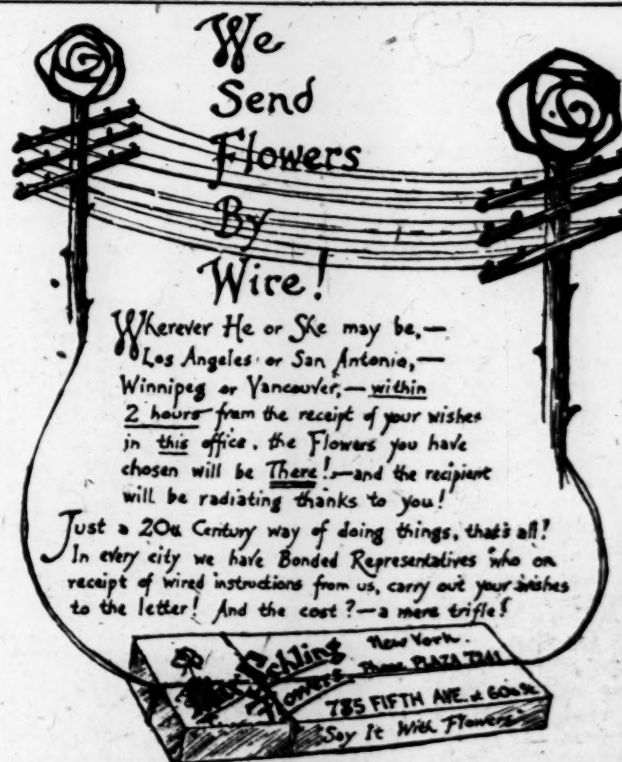 We
Send
Flowers
By
Wire!
Wherever He or She may be,—
Los Angeles or San Antonio,—
Winnipeg or Vancouver,— within
2 hours from the receipt of your wishes
in this office, the Flowers you have
chosen will be There!—and the recipient
will be radiating thanks to you!
Just a 20th Century way of doing things, that's all!
In every city we have Bonded Representatives who on
receipt of wired instructions from us, carry out your wishes
to the letter! And the cost?—a mere trifle!
Max Schling
Flowers
New York.
Phone PLAZA 7241
785 FIFTH AVE. at 60th St
Say It With Flowers